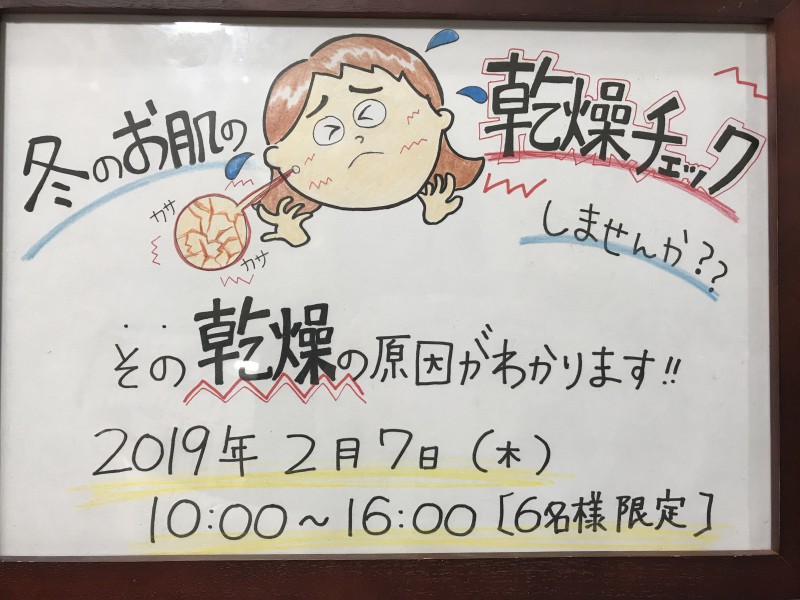 冬のお肌の
乾燥チェック
しませんか??
カサ
カサ
その乾燥の原因がわかります!!
2019年 2月7日(木)
10:00〜16:00[6名様限定]